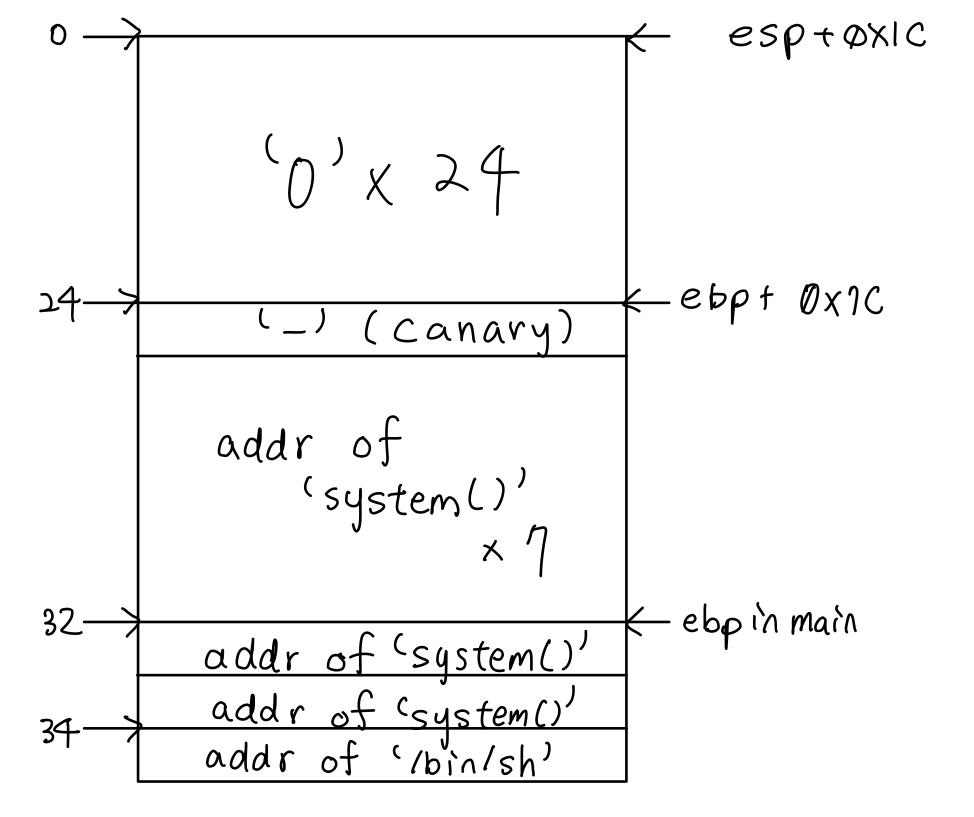 0
esp + 0X1C
'0' x 24
24
ebp + 0x7C
'_' (canary)
addr of
'system()'
x 7
32
ebp in main
addr of 'system()'
addr of 'system()'
34
addr of '/bin/sh'